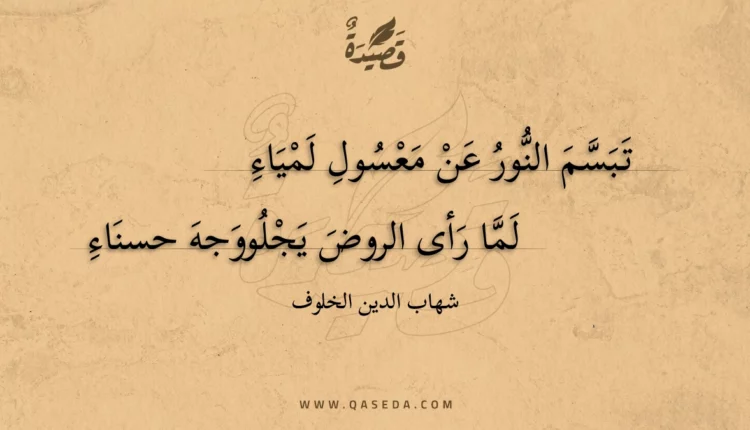 قَصِيدَةٌ
تَبَسَّمَ النُّورُ عَنْ مَعْسُولِ لَمْيَاءِ
لَمَّا رَأى الروضَ يَجْلُووَجهَ حسنَاءِ
شهاب الدين الخلوف
WWW.QASEDA.COM